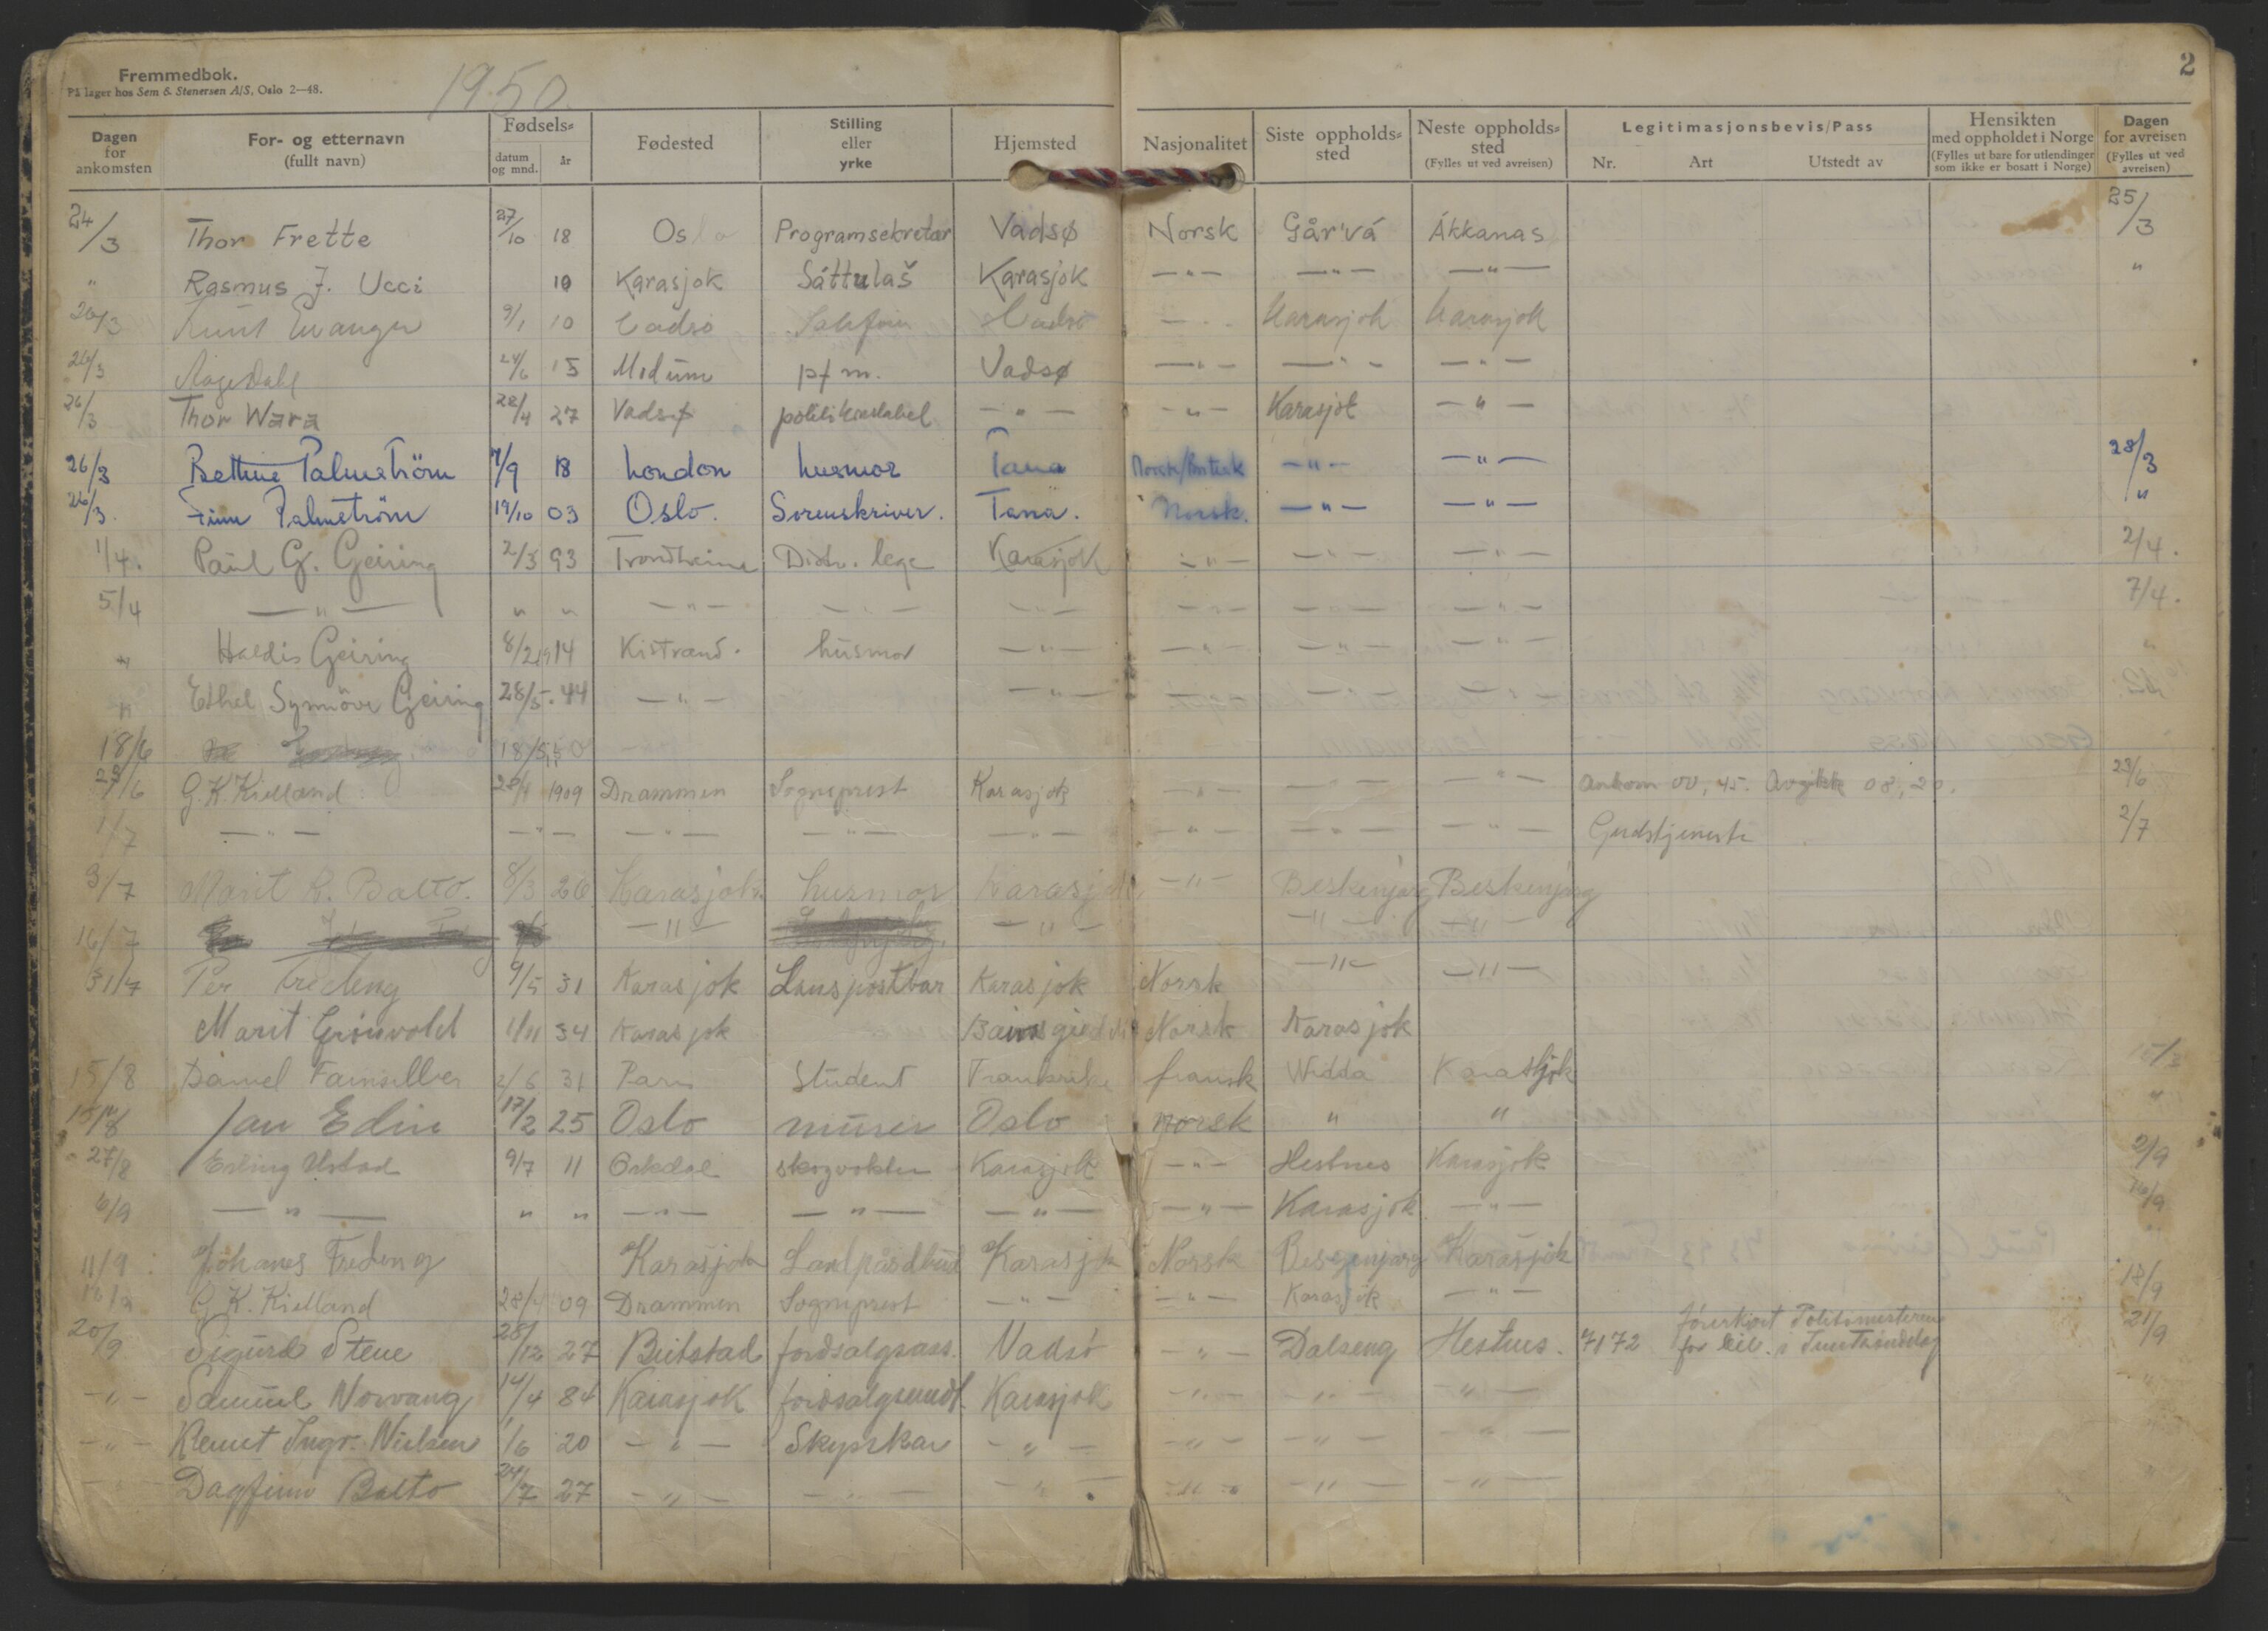 Fremmedbok.
På lager hos Sem & Stenersen A/S, Oslo 2—48.
1950.
2
Dagen for ankomsten
For- og etternavn (fullt navn)
Fødsels=
datum og mnd.
år
Fødested
Stilling eller yrke
Hjemsted
Nasjonalitet
Siste oppholds=sted
Neste oppholds=sted (Fylles ut ved avreisen)
Legitimasjonsbevis/Pass
Nr.
Art
Utstedt av
Hensikten med oppholdet i Norge (Fylles ut bare for utlendinger som ikke er bosatt i Norge)
Dagen for avreisen (Fylles ut ved avreisen)
24/3 Thor Frette 27/10 18 Oslo Programsekretær Vadsø Norsk Går'vá Ákkanas 25/3
" Rasmus J. Ucci 10 Karasjok Sáttulaš Karasjok —"— —"— —"— "
26/3 9/1 10 Vadsø Vadsø Karasjok Karasjok
26/3 Aage Dahl 24/6 15 Modum pf m. Vadsø —"— —"— —"—
26/3 Thor Wara 28/4 27 Vadsø —"— —"— Karasjok —"—
26/3 Bettine Palmström 7/9 18 London husmor Tana Norsk/Britisk —"— —"— 28/3
26/3. Finn Palmström 19/10 03 Oslo. Sorenskriver. Tana. Norsk. —"— —"— "
1/4. Paul G. Geiring 2/3 93 Trondheim Distr. lege Karasjok —"— —"— —"— 2/4.
5/4 —"— " " —"— —"— —"— —"— —"— —"— 7/4.
" Haldis Geiring 8/2 1914 Kistrand. husmor —"— —"— —"— —"— "
" Ethel Synnöve Geiring 28/5. 44 —"— —"— —"— —"—
18/6 18/5 50
27/6 G.K. Kielland 28/4 1909 Drammen Sogneprest Karasjok —"— —"— —"— Ankom 00,45. Avgikk 08,20. 28/6
1/7 —"— —"— —"— —"— —"— —"— —"— —"— Gudstjeneste 2/7
3/7 Marit R. Balto. 8/3 26 Karasjok husmor Karasjok —"— Beskenjarg Beskenjarg
16/7 —"— —"— —"— —"—
31/7 Per Fredeng 9/5 31 Karasjok Lanspostbar Karasjok Norsk —"— —"—
Marit Grönvold 1/11 34 Karasjok Norsk Karasjok
15/8 Daniel 2/6 31 Paris Student Frankrike fransk Widda Karasjok
Jan Edin 17/2 25 Oslo murer Oslo norsk " " "
27/8 Erling Ustad 9/7 11 Orkdal skogvokter Karasjok —"— Hestnes Karasjok 2/9
6/9 —"— " " —"— —"— —"— —"— Karasjok —"—
11/9 Johanes Fredeng Karasjok Karasjok Norsk Karasjok "
G.K. Kielland 28/4 09 Drammen Sogneprest —"— —"— Karasjok —"— 18/9
20/9 Sigurd Stene 28/12 27 Beitstad jordsalgsass. Vadsö —"— Dalseng Hestnes. 7172 förerkort Politimesteren 21/9
—"— Samuel Norvang 14/4 84 Karasjok Karasjok —"— —"— —"— "
—"— Klemet Ingv. Nielsen 1/6 20 —"— Skysskar —"— —"— —"— —"—
—"— Dagfinn Balto 24/7 27 —"— —"— —"— —"— —"— —"— "